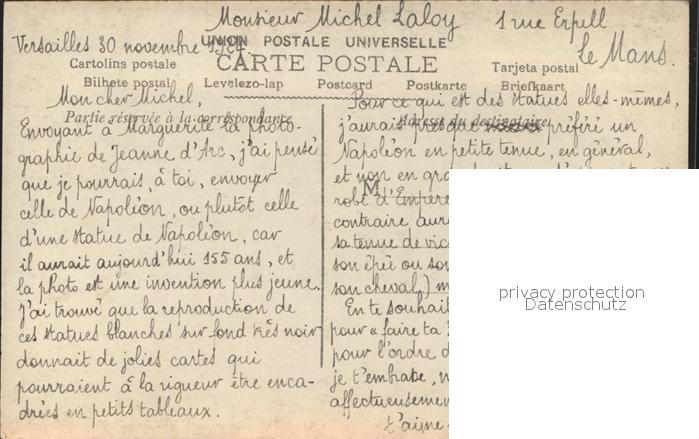 Monsieur Michel Laloy
1 rue Erpell
Le Mans.
Versailles 30 novembre 1924
UNION POSTALE UNIVERSELLE
CARTE POSTALE
Cartolina postale
Tarjeta postal
Bilhete postal Levelezo-lap Postcard Postkarte Briefkaart
Partie réservée à la correspondance
Adresse du destinataire
Mon cher Michel,
Envoyant à Marguerite la photo-
graphie de Jeanne d'Arc, j'ai pensé
que je pourrais, à toi, envoyer
celle de Napoléon, ou plutôt celle
d'une statue de Napoléon, car
il aurait aujourd'hui 155 ans, et
la photo est une invention plus jeune.
J'ai trouvé que la reproduction de
ces statues blanches sur fond très noir
donnait de jolies cartes qui
pourraient à la rigueur être enca-
drées en petits tableaux.
Pour ce qui est des statues elles-mêmes,
j'aurais presque préféré un
Napoléon en petite tenue, en général,
et non en gra
M
robe d'Empere
contraire aur
sa tenue de vic
son épée ou so
son cheval,) m
En te souhait
pour "faire ta
pour l'ordre d
je t'embrasse, n
affectueusemen
t'aime
privacy protection
Datenschutz